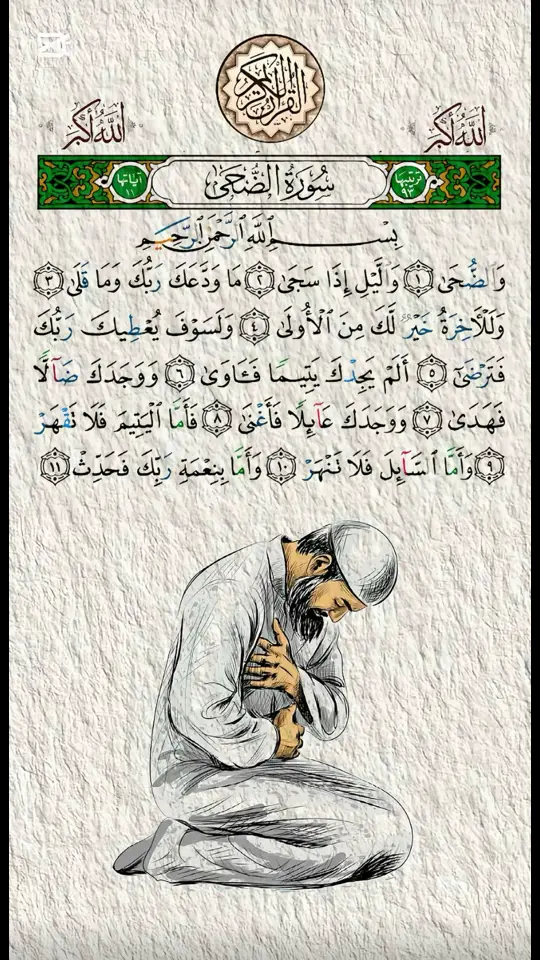 القرآن الكريم
الله أكبر
الله أكبر
ترتيبها ٩٣
سُورَةُ الضُّحَىٰ
آياتها ١١
بِسْمِ ٱللَّهِ ٱلرَّحْمَٰنِ ٱلرَّحِيمِ
وَٱلضُّحَىٰ ١ وَٱلَّيْلِ إِذَا سَجَىٰ ٢ مَا وَدَّعَكَ رَبُّكَ وَمَا قَلَىٰ ٣
وَلَلْأَخِرَةُ خَيْرٌ لَّكَ مِنَ ٱلْأُولَىٰ ٤ وَلَسَوْفَ يُعْطِيكَ رَبُّكَ
فَتَرْضَىٰٓ ٥ أَلَمْ يَجِدْكَ يَتِيمًا فَـَٔاوَىٰ ٦ وَوَجَدَكَ ضَآلًّا
فَهَدَىٰ ٧ وَوَجَدَكَ عَآئِلًا فَأَغْنَىٰ ٨ فَأَمَّا ٱلْيَتِيمَ فَلَا تَقْهَرْ
٩ وَأَمَّا ٱلسَّآئِلَ فَلَا تَنْهَرْ ١٠ وَأَمَّا بِنِعْمَةِ رَبِّكَ فَحَدِّثْ ١١